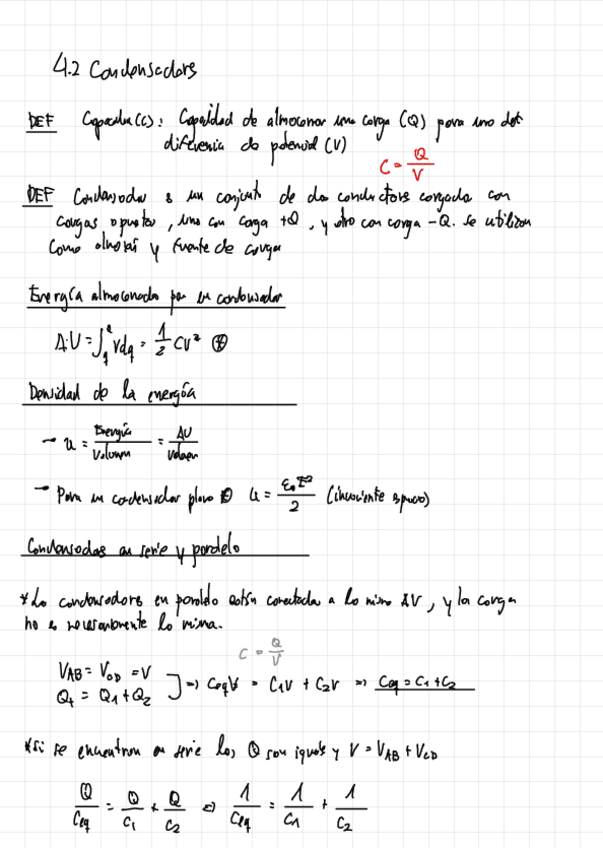 4.2 Condensadors
DEF Capacitat(C): Capacidad de almacenar una carga (Q) para una det
diferencia de potencial (V)
C = Q/V
DEF Condensador es un conjunto de dos conductores cargados con
cargas opuestas, uno con carga +Q, y otro con carga -Q. se utilizan
como almacén y fuente de carga
Energía almacenada por un condensador
ΔU = ∫ V dq = 1/2 CV²
Densidad de la energía
→ u = Energía/Volumen = ΔU/Volumen
→ Para un condensador plano u = ε₀E²/2
Condensadores en serie y paralelo
* Los condensadores en paralelo están conectados a la misma ΔV, y la carga
no es necesariamente la misma.
C = Q/V
V_AB = V_CD = V
Q_t = Q_1 + Q_2 ] => C_eq V = C_1 V + C_2 V => C_eq = C_1 + C_2
* Si se encuentran en serie las Q son iguales y V = V_AB + V_CD
Q/C_eq = Q/C_1 + Q/C_2 => 1/C_eq = 1/C_1 + 1/C_2